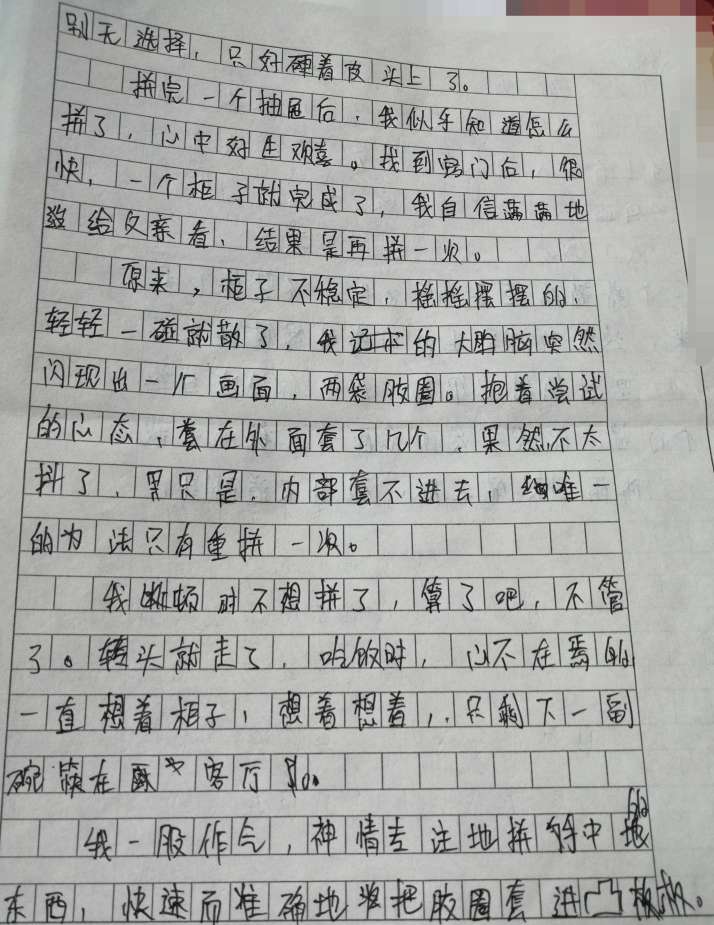 别无选择，只好硬着皮头上了。
拼完一个抽屉后，我似乎知道怎么
拼了，心中好生欢喜。找到窍门后，很
快，一个柜子就完成了，我自信满满地
给父亲看，结果是再拼一次。
原来，柜子不稳定，摇摇摆摆的，
轻轻一碰就散了，我的大脑突然
闪现出一个画面，两袋胶圈。抱着尝试
的心态，套在外面套了几个，果然不太
抖了，只是，内部套不进去，唯一
的办法只有重拼一次。
我顿时不想拼了，算了吧，不管
了。转头就走了，吃饭时，心不在焉的
一直想着柜子，想着想着，只剩下一副
碗筷在客厅
我一股作气，神情专注地拼好手中的
东西，快速而准确地把胶圈套进凸板。